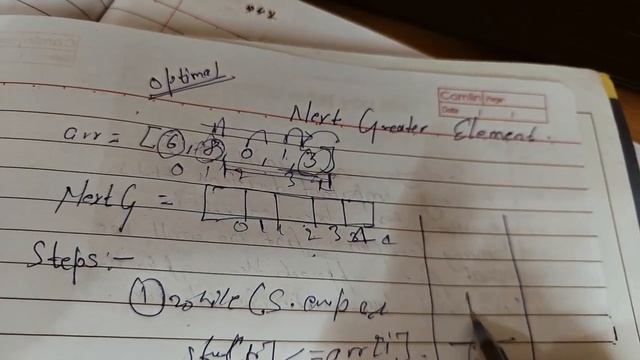 Optimal
Camlin Page
Date
Next Greater Element.
arr = [6, 8, 0, 1, 3]
0 1 2 3 4
NextG =
0 1 2 3 4
Steps:-
① while (S.
<= arr[i]